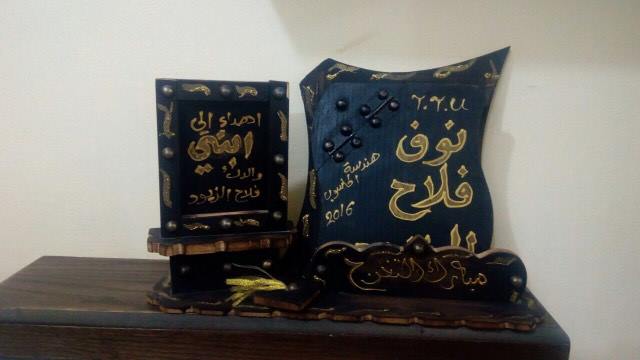 اهداء الى
ابنتي
والدك
فلاح الزيود
نوف
فلاح
هندسة
الحاسوب
2016
مبارك التخرج